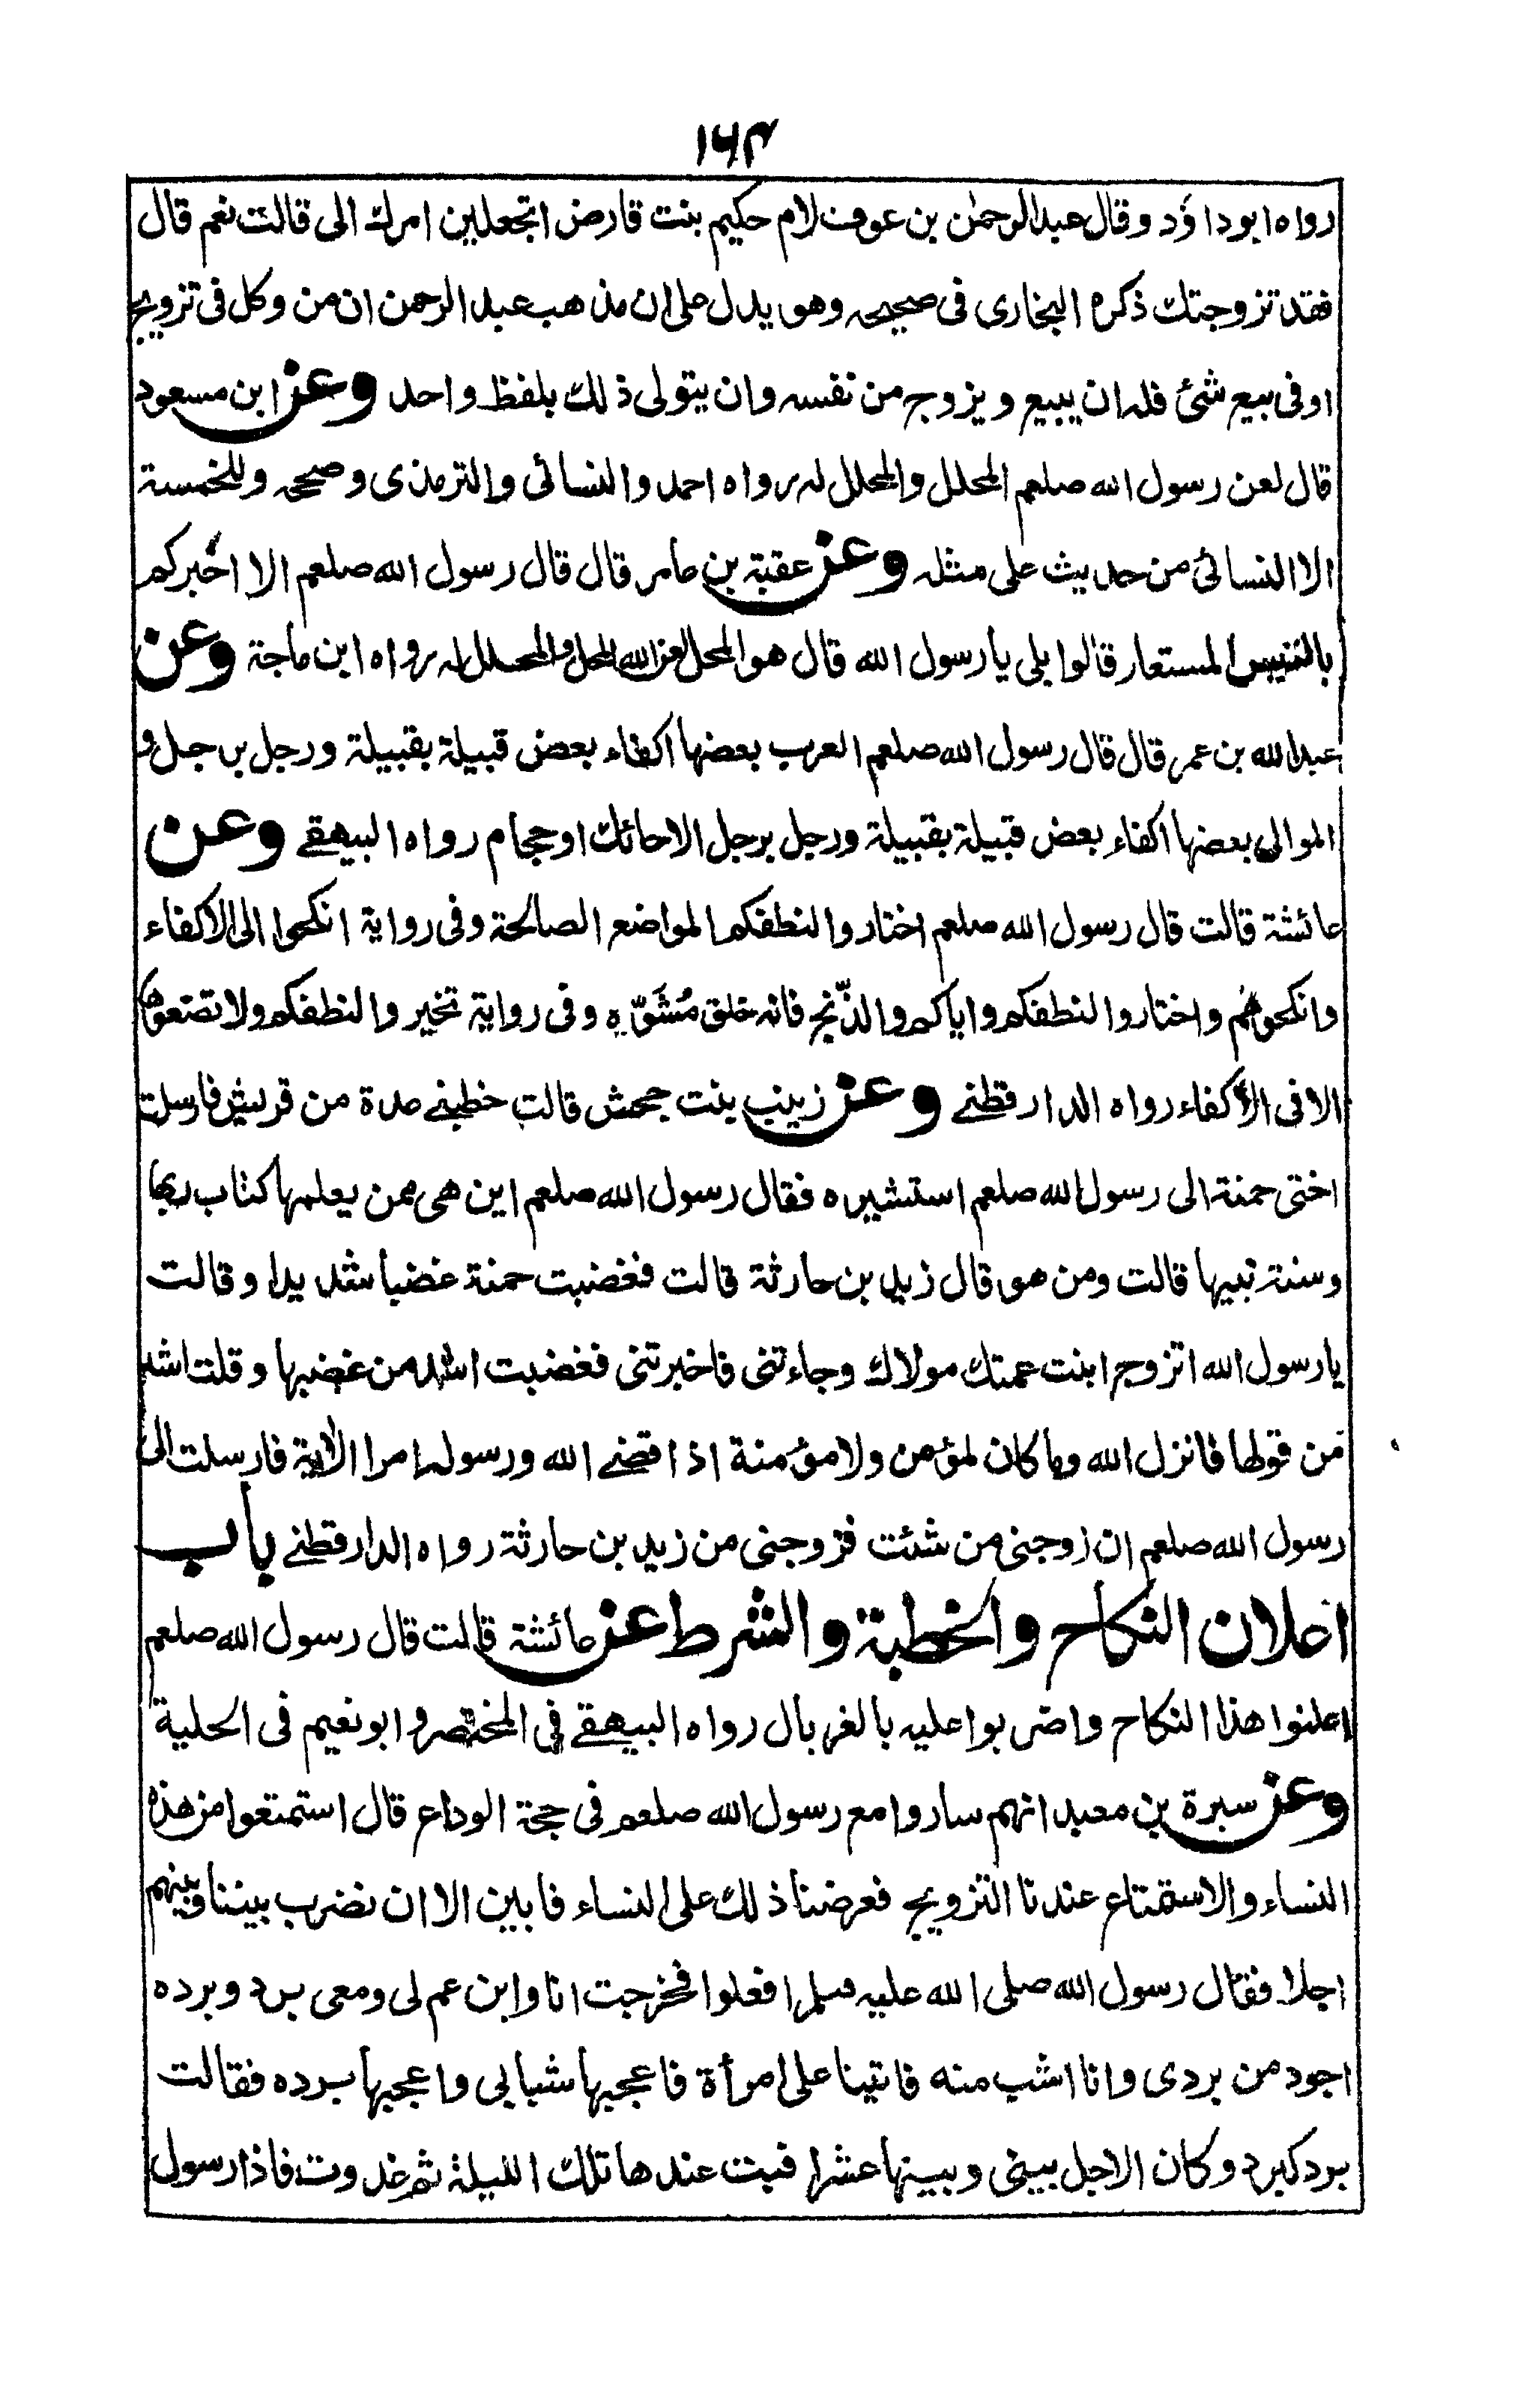 ١٦٤
رواه ابوداؤد وقال عبدالرحمٰن بن عوف لام حكيم بنت قارض اتجعلين امرك الى قالت نعم قال
فقد تزوجتك ذكره البخارى فى صحيحه وهو يدل على ان مذهب عبد الرحمن ان من وكل فى تزويج
اوفى بيع شئ فله ان يبيع ويزوج من نفسه وان يتولى ذلك بلفظ واحد وعن ابن مسعود
قال لعن رسول الله صلعم المحلل والمحلل له رواه احمد والنسائى والترمذى وصححه وللخمسة
الا النسائى من حديث على مثله وعن عقبة بن عامر قال قال رسول الله صلعم الا اخبركم
بالتيس المستعار قالوا بلى يا رسول الله قال هو المحل لعن الله المحل والمحلل له رواه ابن ماجة وعن
عبدالله بن عمر قال قال رسول الله صلعم العرب بعضها اكفاء بعض قبيلة بقبيلة ورجل برجل و
الموالى بعضها اكفاء بعض قبيلة بقبيلة ورجل برجل الا حائك او حجام رواه البيهقے وعن
عائشة قالت قال رسول الله صلعم اختاروا لنطفكم المواضع الصالحة وفى رواية انكحوا الى الاكفاء
وانكحوهم واختاروا لنطفكم واياكم والزنج فانه خلق مُشَوَّه وفى رواية تخيروا لنطفكم ولا تضعوها
الا فى الأكفاء رواه الدارقطنے وعن زينب بنت جحش قالت خطبنے عدة من قريش فارسلت
اختى حمنة الى رسول الله صلعم استشيره فقال رسول الله صلعم اين هى ممن يعلمها كتاب ربها
وسنة نبيها قالت ومن هو قال زيد بن حارثة قالت فغضبت حمنة غضبا شديدا وقالت
يا رسول الله اتزوج ابنت عمتك مولاك وجاءتنى فاخبرتنى فغضبت اشد من غضبها وقلت اشد
من قولها فانزل الله وما كان لمؤمن ولا مؤمنة اذا قضے الله ورسوله امرا الآية فارسلت الى
رسول الله صلعم ان زوجنى من شئت فزوجنى من زيد بن حارثة رواه الدارقطنے باب
اعلان النكاح والخطبة والشرط عن عائشة قالت قال رسول الله صلعم
اعلنوا هذا النكاح واضربوا عليه بالغربال رواه البيهقے فى المختصر وابو نعيم فى الحلية
وعن سبرة بن معبد انهم ساروا مع رسول الله صلعم فى حجة الوداع قال استمتعوا من هذه
النساء والاستمتاع عندنا التزويج فعرضنا ذلك على النساء فابين الا ان نضرب بيننا وبينهم
اجلا فقال رسول الله صلى الله عليه وسلم افعلوا فخرجت انا وابن عم لى ومعى برد وبرده
اجود من بردى وانا اشب منه فاتينا على امرأة فاعجبها شبابى واعجبها برده فقالت
برد كبرد وكان الاجل بينى وبينها عشرا فبت عندها تلك الليلة ثم غدوت فاذا رسول